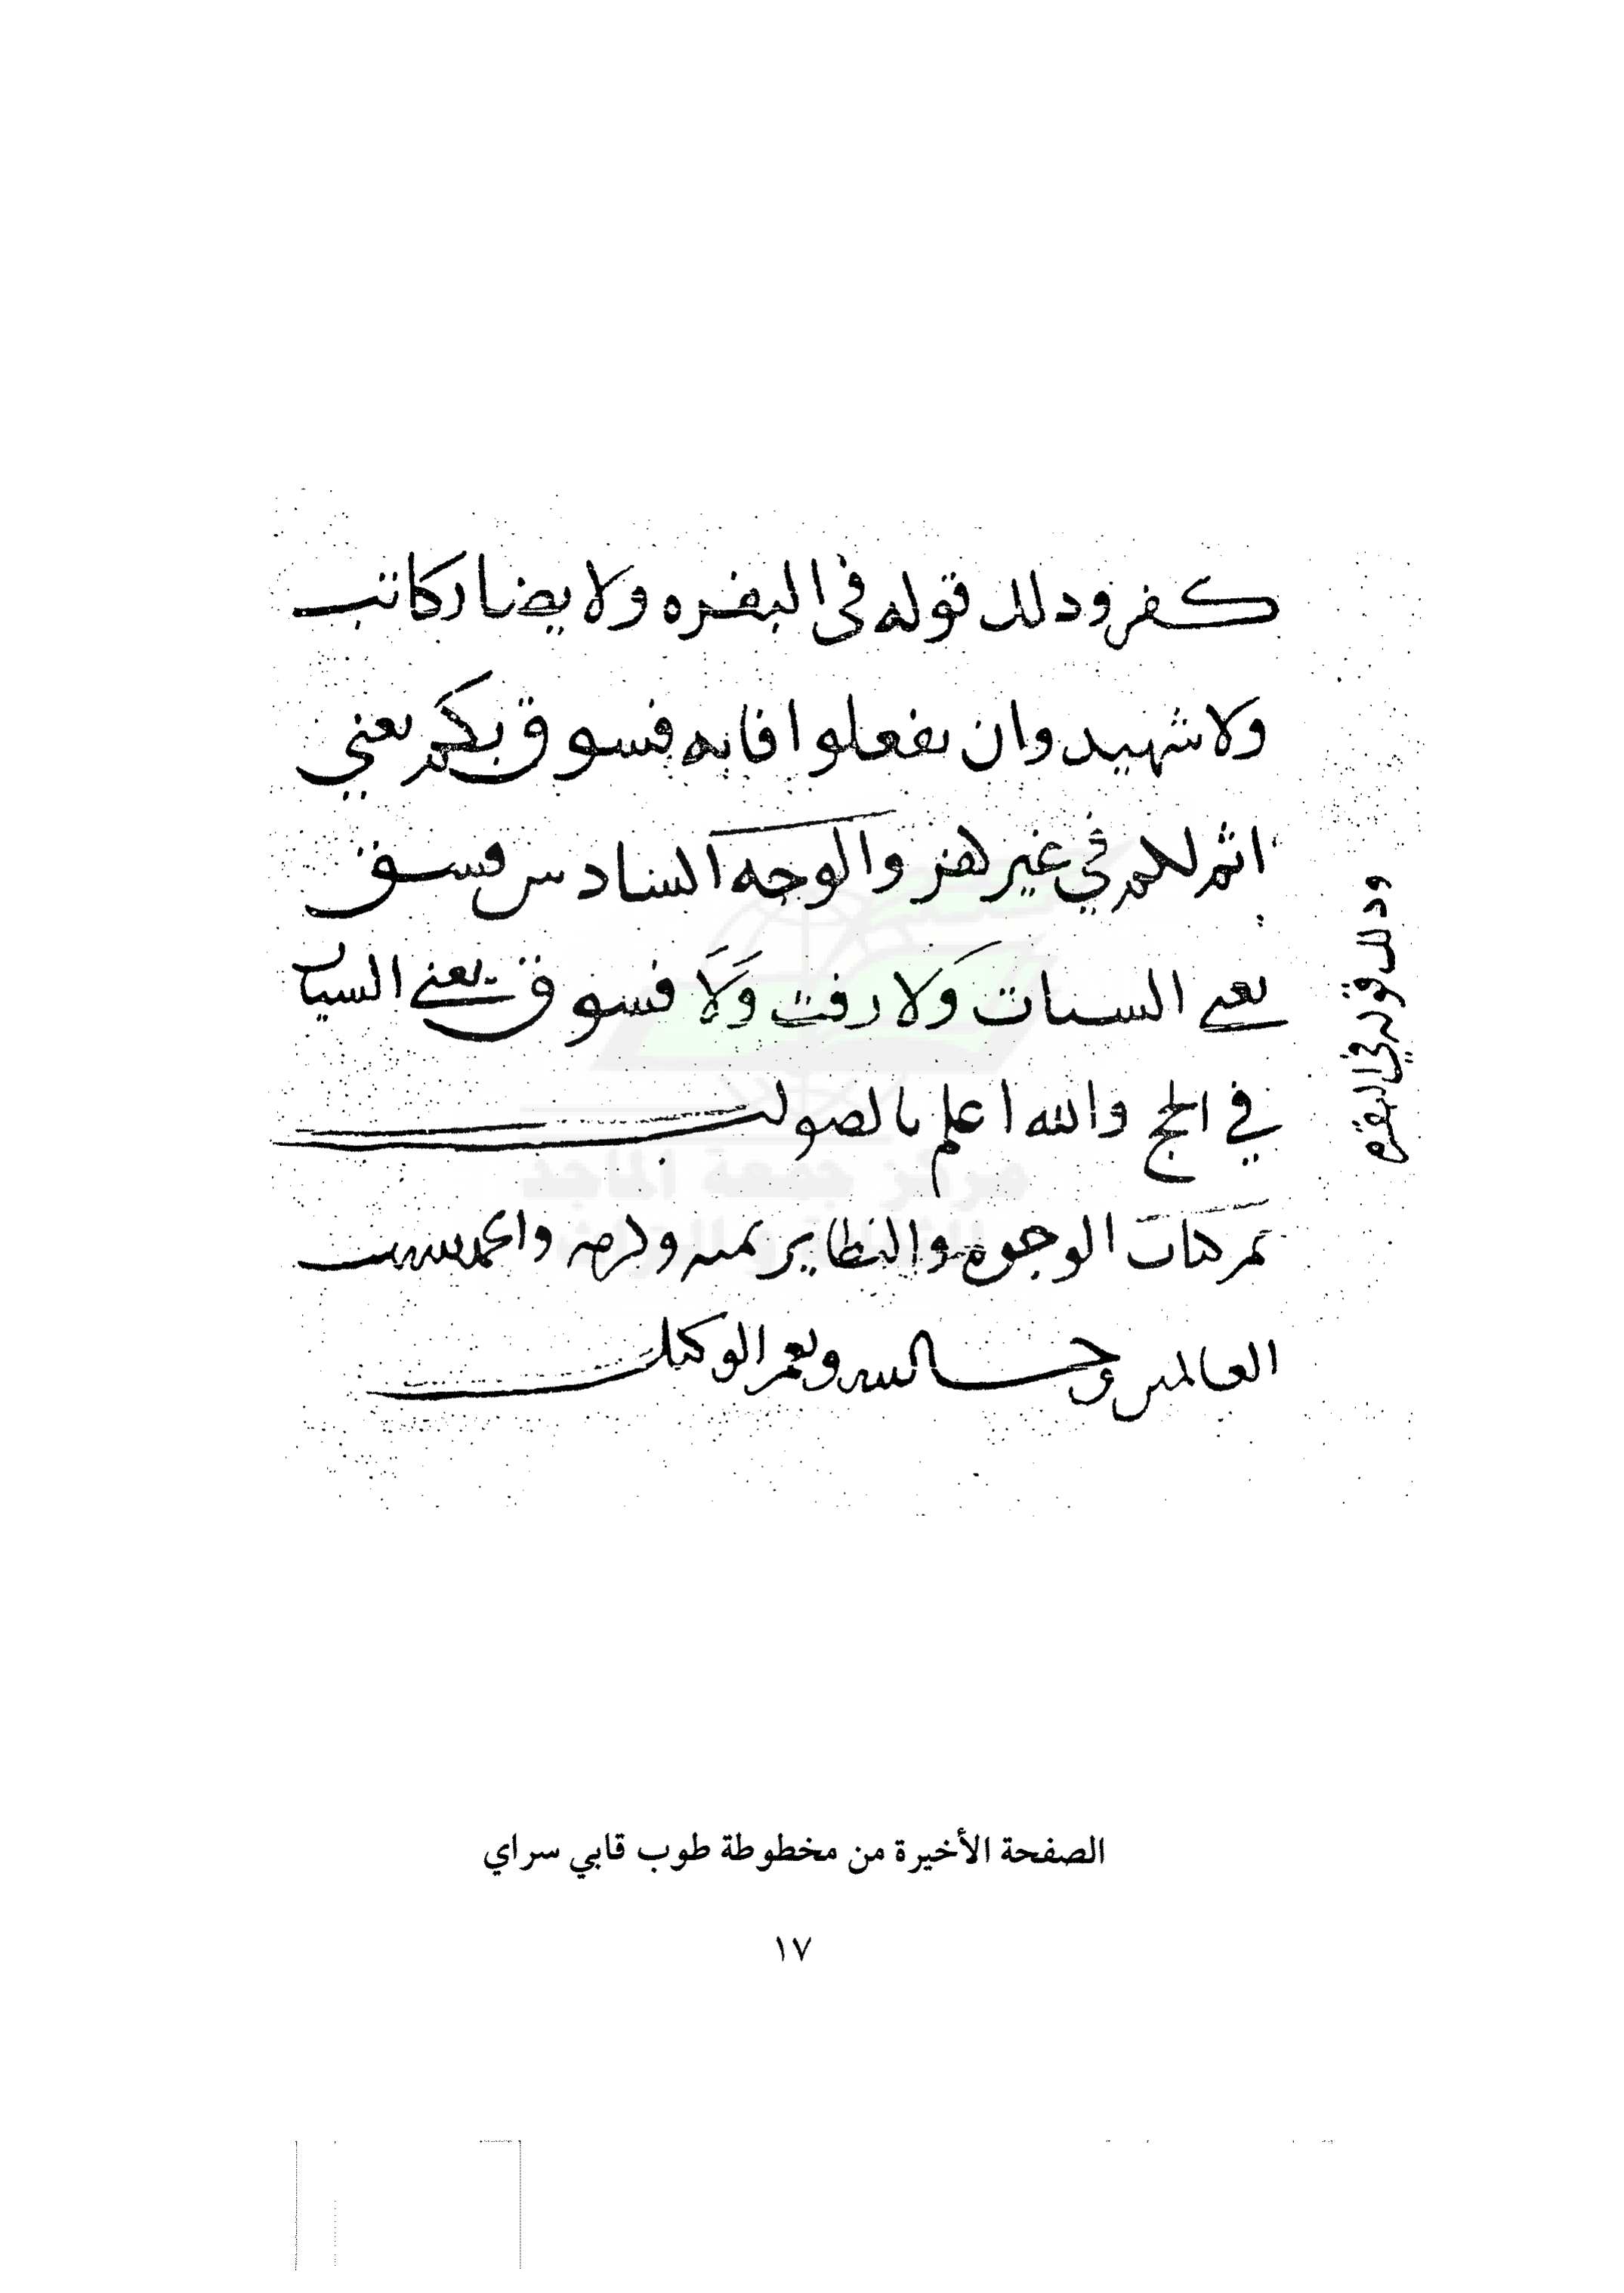 كفر وذلك قوله في البقره ولا يضار كاتب
ولا شهيد وان تفعلوا فانه فسوق بكم يعني
اثم لكم في غير كفر والوجه السادس فسق
يعني السباب ولا رفث ولا فسوق يعني السباب
وذلك قوله في البقره
في الحج والله اعلم بالصواب
تم كتاب الوجوه والنظاير بمنه وكرمه والحمد لله رب
العالمين وحسبنا الله ونعم الوكيل
الصفحة الأخيرة من مخطوطة طوب قابي سراي
١٧